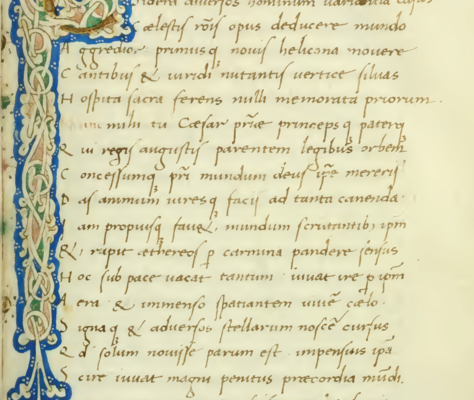 idera diversos hominum variantia casus
Cælestis rõis opus deducere mundo
A ggredior primusq novis helicona movere
C antibus & viridi nutantis vertice silvas
H ospita sacra ferens nulli memorata priorum.
mihi tu Cæsar prĩæ princepsq paterq
Q ui regis augustis parentem legibus orbem
C oncessumq pr̃i mundum deus ip̃e mereris
D as animum viresq facis ad tanta canenda
I am propiusq fave&, mundum scrutantib; ip̃m
& cupit æthereos p carmina pandere sensus
H oc sub pace vacat tantum. iuvat ire p ip̃m
A era & immenso spatiantem vivẽ cælo.
S ignaq & adversos stellarum noscẽ cursus
Q d solum novisse parum est. impensius ip̃a
S cire iuvat magni penitus præcordia mũdi.